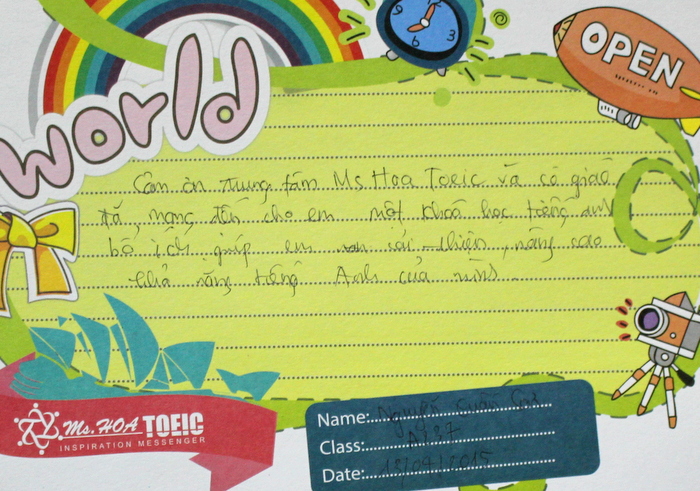 world
OPEN
6
3
Cảm ơn trung tâm Ms Hoa Toeic và cô giáo
đã mang đến cho em một khoá học tiếng anh
bổ ích giúp em cải thiện, nâng cao
khả năng tiếng Anh của mình
Ms. HOA TOEIC
INSPIRATION MESSENGER
Name: Nguyễn Xuân
Class: A137
Date: 13/09/2015